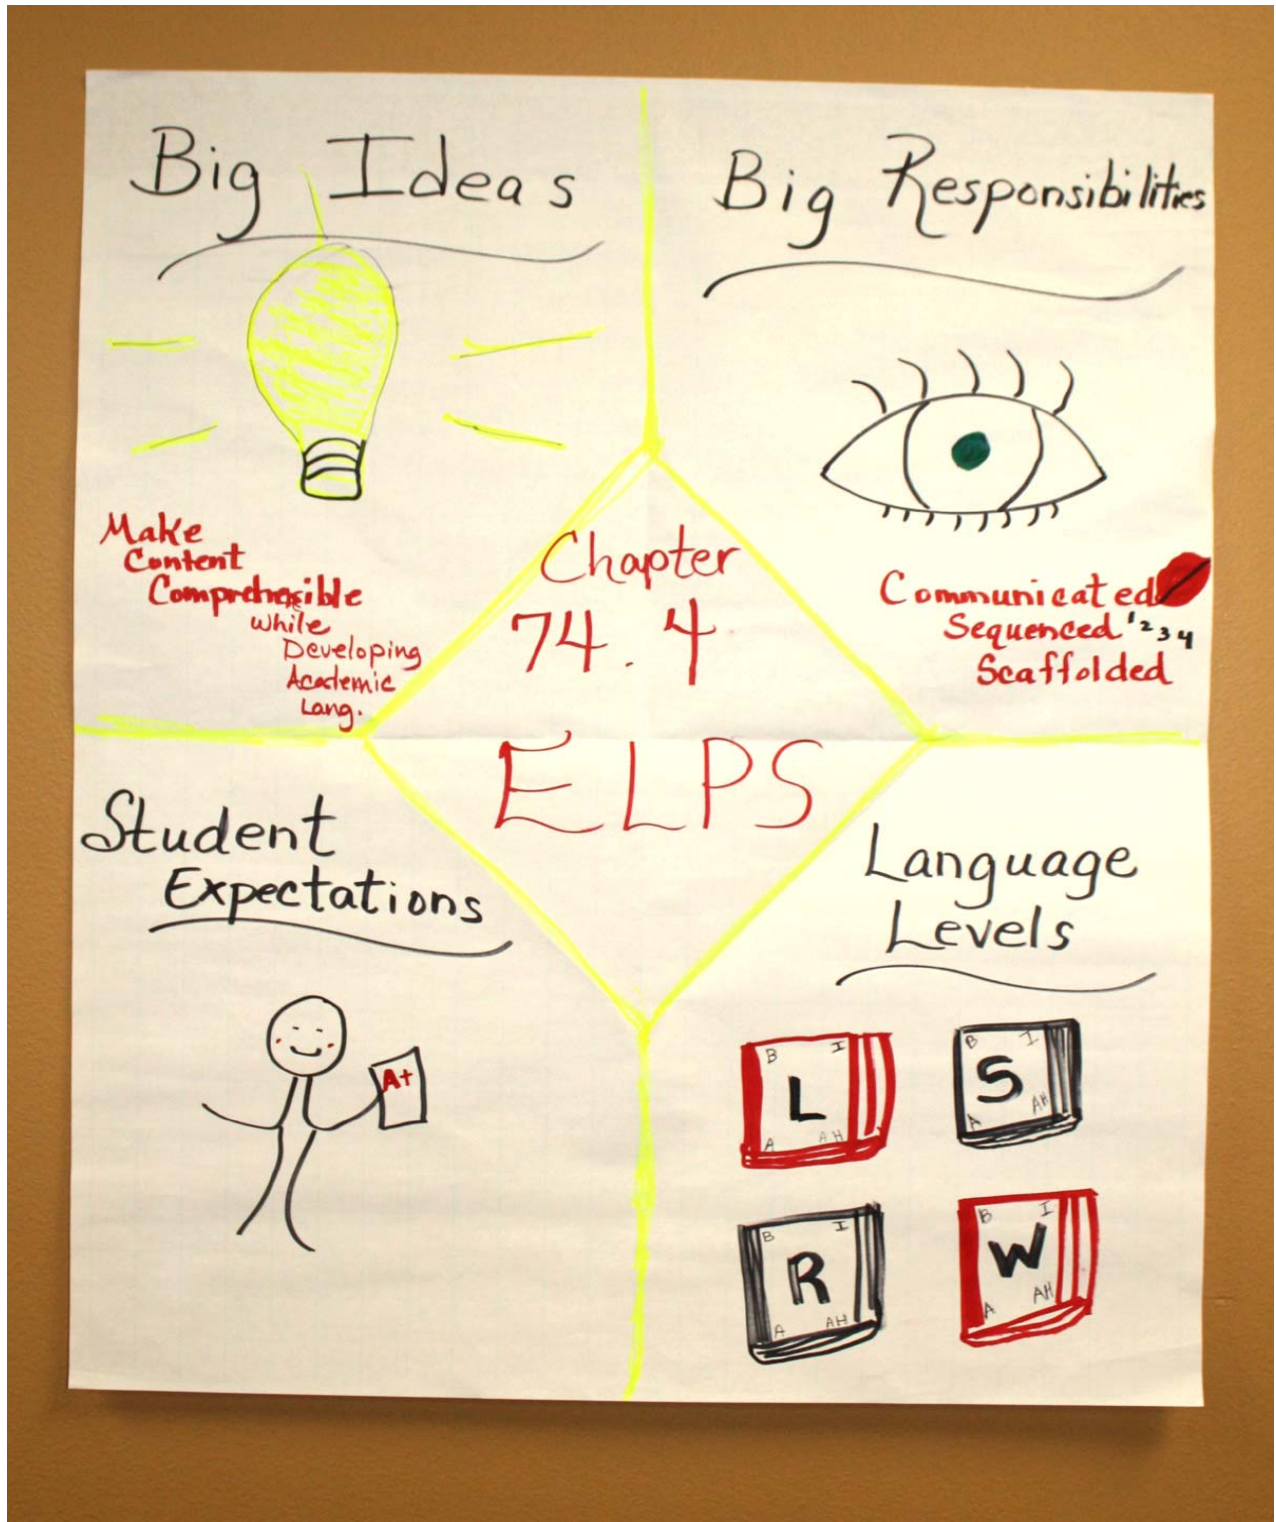 Big Ideas
Make
Content
Comprehensible
while
Developing
Academic
Lang.
Big Responsibilities
Communicated
Sequenced 1 2 3 4
Scaffolded
Chapter
74.4
ELPS
Student
Expectations
A+
Language
Levels
B I
L
A AH
B I
S
A AH
B I
R
A AH
B I
W
A AH